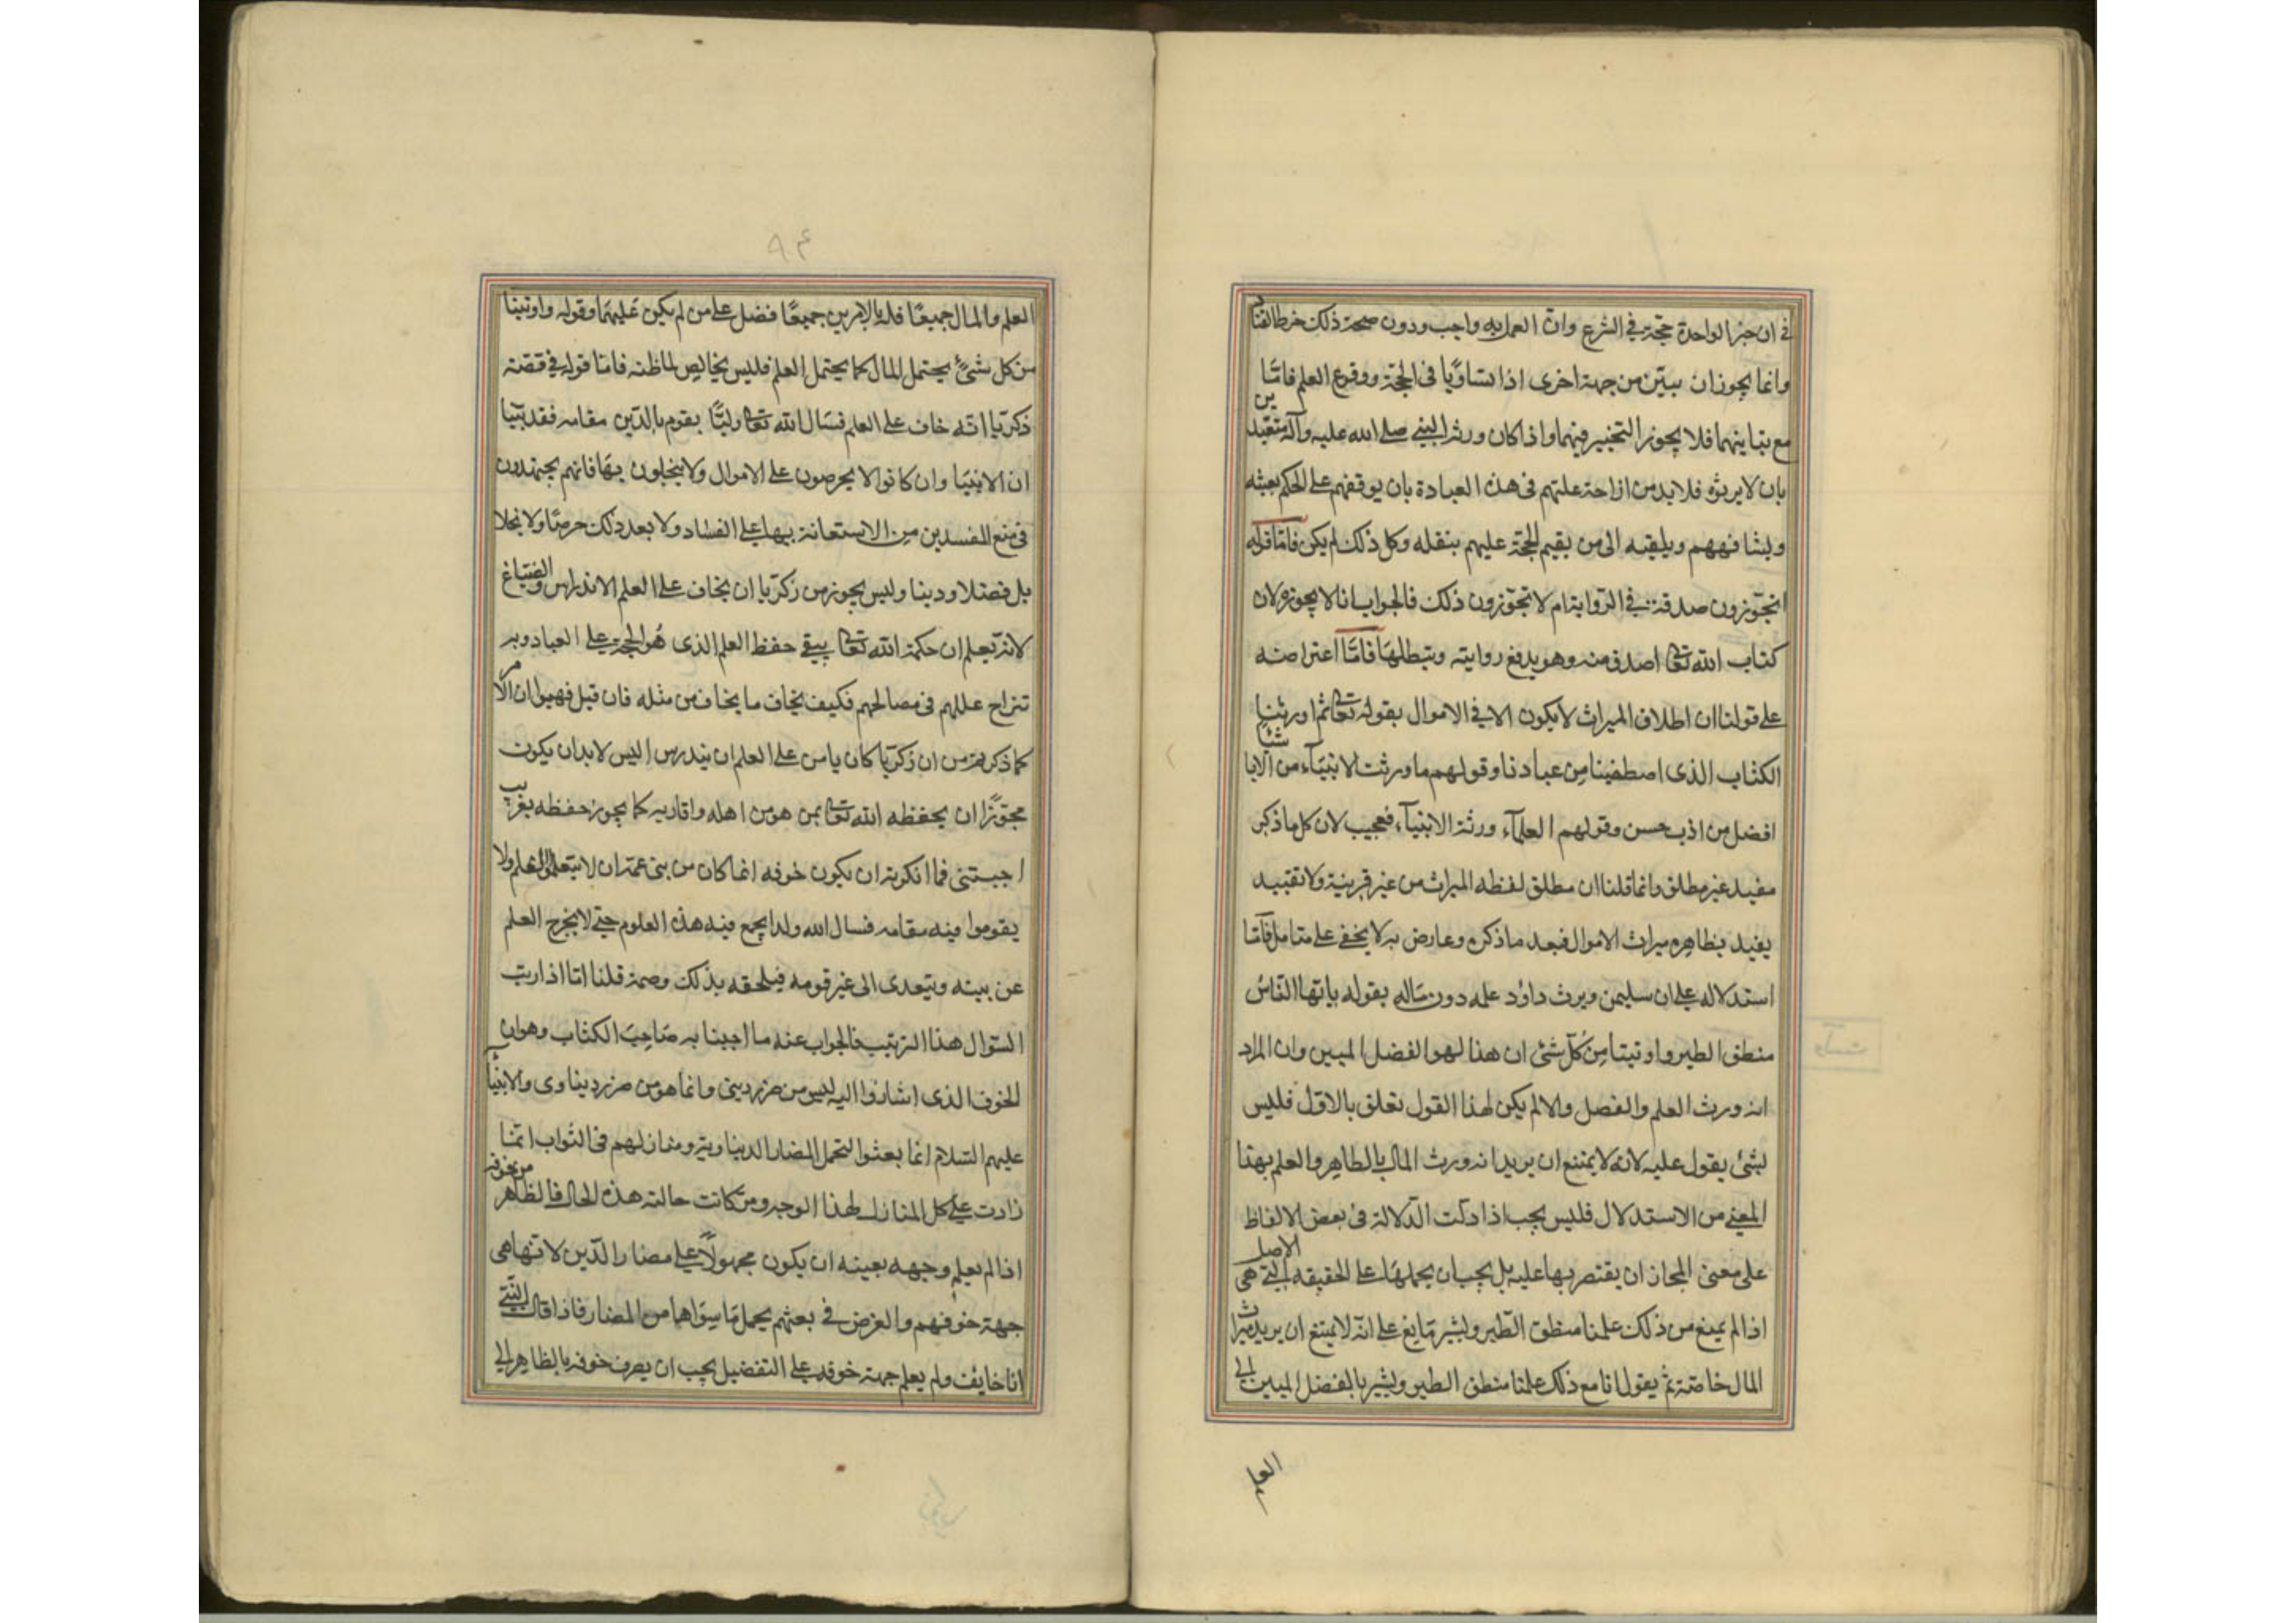 في ان خبر الواحدة حجة في الشرع وان العمل به واجب ودون صحة ذلك خرط القتاد
وانما يجوز ان يبين من جهة اخرى اذا تساويا فى الحجة ووقوع العلم فامّا
مع تباينهما فلا يجوز التخيير فيهما واذا كان ورثة النبي صلى الله عليه وآله متعبدين
بان لا يرثوه فلابد من ازاحة علتهم فى هذه العبادة بان يوقفهم على الحكم بعينه
ويشافههم ويلقيه الى من يقيم الحجة عليهم بنقله وكل ذلك لم يكن فامّا قوله
اتجوّزون صدقه في الرّواية ام لا تجوّزون ذلك فالجواب انا لا يجوزه لان
كتاب الله تعالى اصدق منه وهو يدفع روايته ويبطلها فامّا اعتراضه
على قولنا ان اطلاق الميراث لا يكون الا في الاموال بقوله تعالى ثم اورثنا
الكتاب الذى اصطفينا من عبادنا وقولهم ما ورثت الابنآء من الابا شيئا
افضل من ادب حسن وقولهم العلمآء ورثة الانبيآء فعجيب لان كل ما ذكر
مقيد غير مطلق وانما قلنا ان مطلق لفظه الميراث من غير قرينة ولا تقييد
يفيد بظاهره ميراث الاموال فبعد ما ذكره وعارض به لا يخفى على متامل فآمّا
استدلاله على ان سليمن ويرث داؤد علمه دون ماله بقوله يايّها النّاسُ
منطق الطير واوتينا من كلّ شئ ان هذا لهو الفضل المبين وان المراد
انه ورث العلم والفضل والا لم يكن لهذا القول تعلق بالاوّل فليس
بشئ يقول عليه لانه لا يمتنع ان يريد انه ورث المال بالظاهر والعلم بهذا
المعنى من الاستدلال فليس يجب اذا دلت الدّلالة في بعض الالفاظ
على معنى المجاز ان يقتصر بها عليه بل يجب ان يحملها على الحقيقه التي هي الاصل
اذا لم يمنع من ذلك علمنا منطق الطّير ويشير مانع على انّه لا يمتنع ان يريد ميراث
المال خاصّة ثم يقول انا مع ذلك علمنا منطق الطير ويشير بالفضل المبين الى
العلم
٩۴
العلم والمال جميعًا فله بالامرين جميعًا فضل على من لم يكن عليهما وقوله واوتينا
من كل شئ يحتمل المال كما يحتمل العلم فليس بخالص لما ظنه فامّا قوله في قصّة
ذكريا انّه خاف على العلم فسال الله تعالى وليًّا يقوم بالدّين مقامه فقد بيّنا
ان الانبيا وان كانوا لا يحرصون على الاموال ولا يبخلون بها فانهم يجتهدون
فى منع المفسدين من الاستعانة بها على الفساد ولا يعد ذلك حرصًا ولا بخلا
بل فضلا ودينا وليس يجوز من زكريّا ان يخاف على العلم الاندراس والضياع
لانه يعلم ان حكمة الله تعالى يبقى حفظ العلم الذى هُو الحجة على العباد وبه
تنزاح عللهم فى مصالحهم فكيف يخاف ما يخاف من مثله فان قيل فهبوا ان الامر
كما ذكرتم من ان زكريّا كان يامن على العلم ان يندرس اليس لابد ان يكون
مجوّزًا ان يحفظه الله تعالى بمن هو من اهله واقاربه كما يجوز حفظه بغريب
اجبتنى فما انكرتم ان يكون خوفه انما كان من بنى عمّه ان لا يتعلموا العلم ولا
يقوموا فيه مقامه فسال الله ولدا يجمع فيه هذه العلوم حتى لا يخرج العلم
عن بيته ويتعدى الى غير قومه فيلحقه بذلك وصمة قلنا امّا اذا رتب
السّوال هذا الترتيب فالجواب عنه ما اجبنا به صاحبَ الكتاب وهو ان
الخوف الذى اشاروا اليه ليس من ضرر دينى وانما هو من ضرر دينا وى والانبياء
عليهم السّلام انما بعثوا لتحمل المضار الديناوية ومنازلهم فى الثواب انّما
زادت على كل المنازل لهذا الوجه ومن كانت حالته هذه الحال فالظاهر من خوفه
اذا لم يعلم وجهه بعينه ان يكون مجهولاً على مضار الدّين لانها هى
جهة خوفهم والغرض في بعثهم يحمل مَا سِوَاها من المضار فاذا قال النبيّ
انا خايف ولم يعلم جهة خوفه على التفضيل يجب ان يصرف خوفه بالظاهر الى